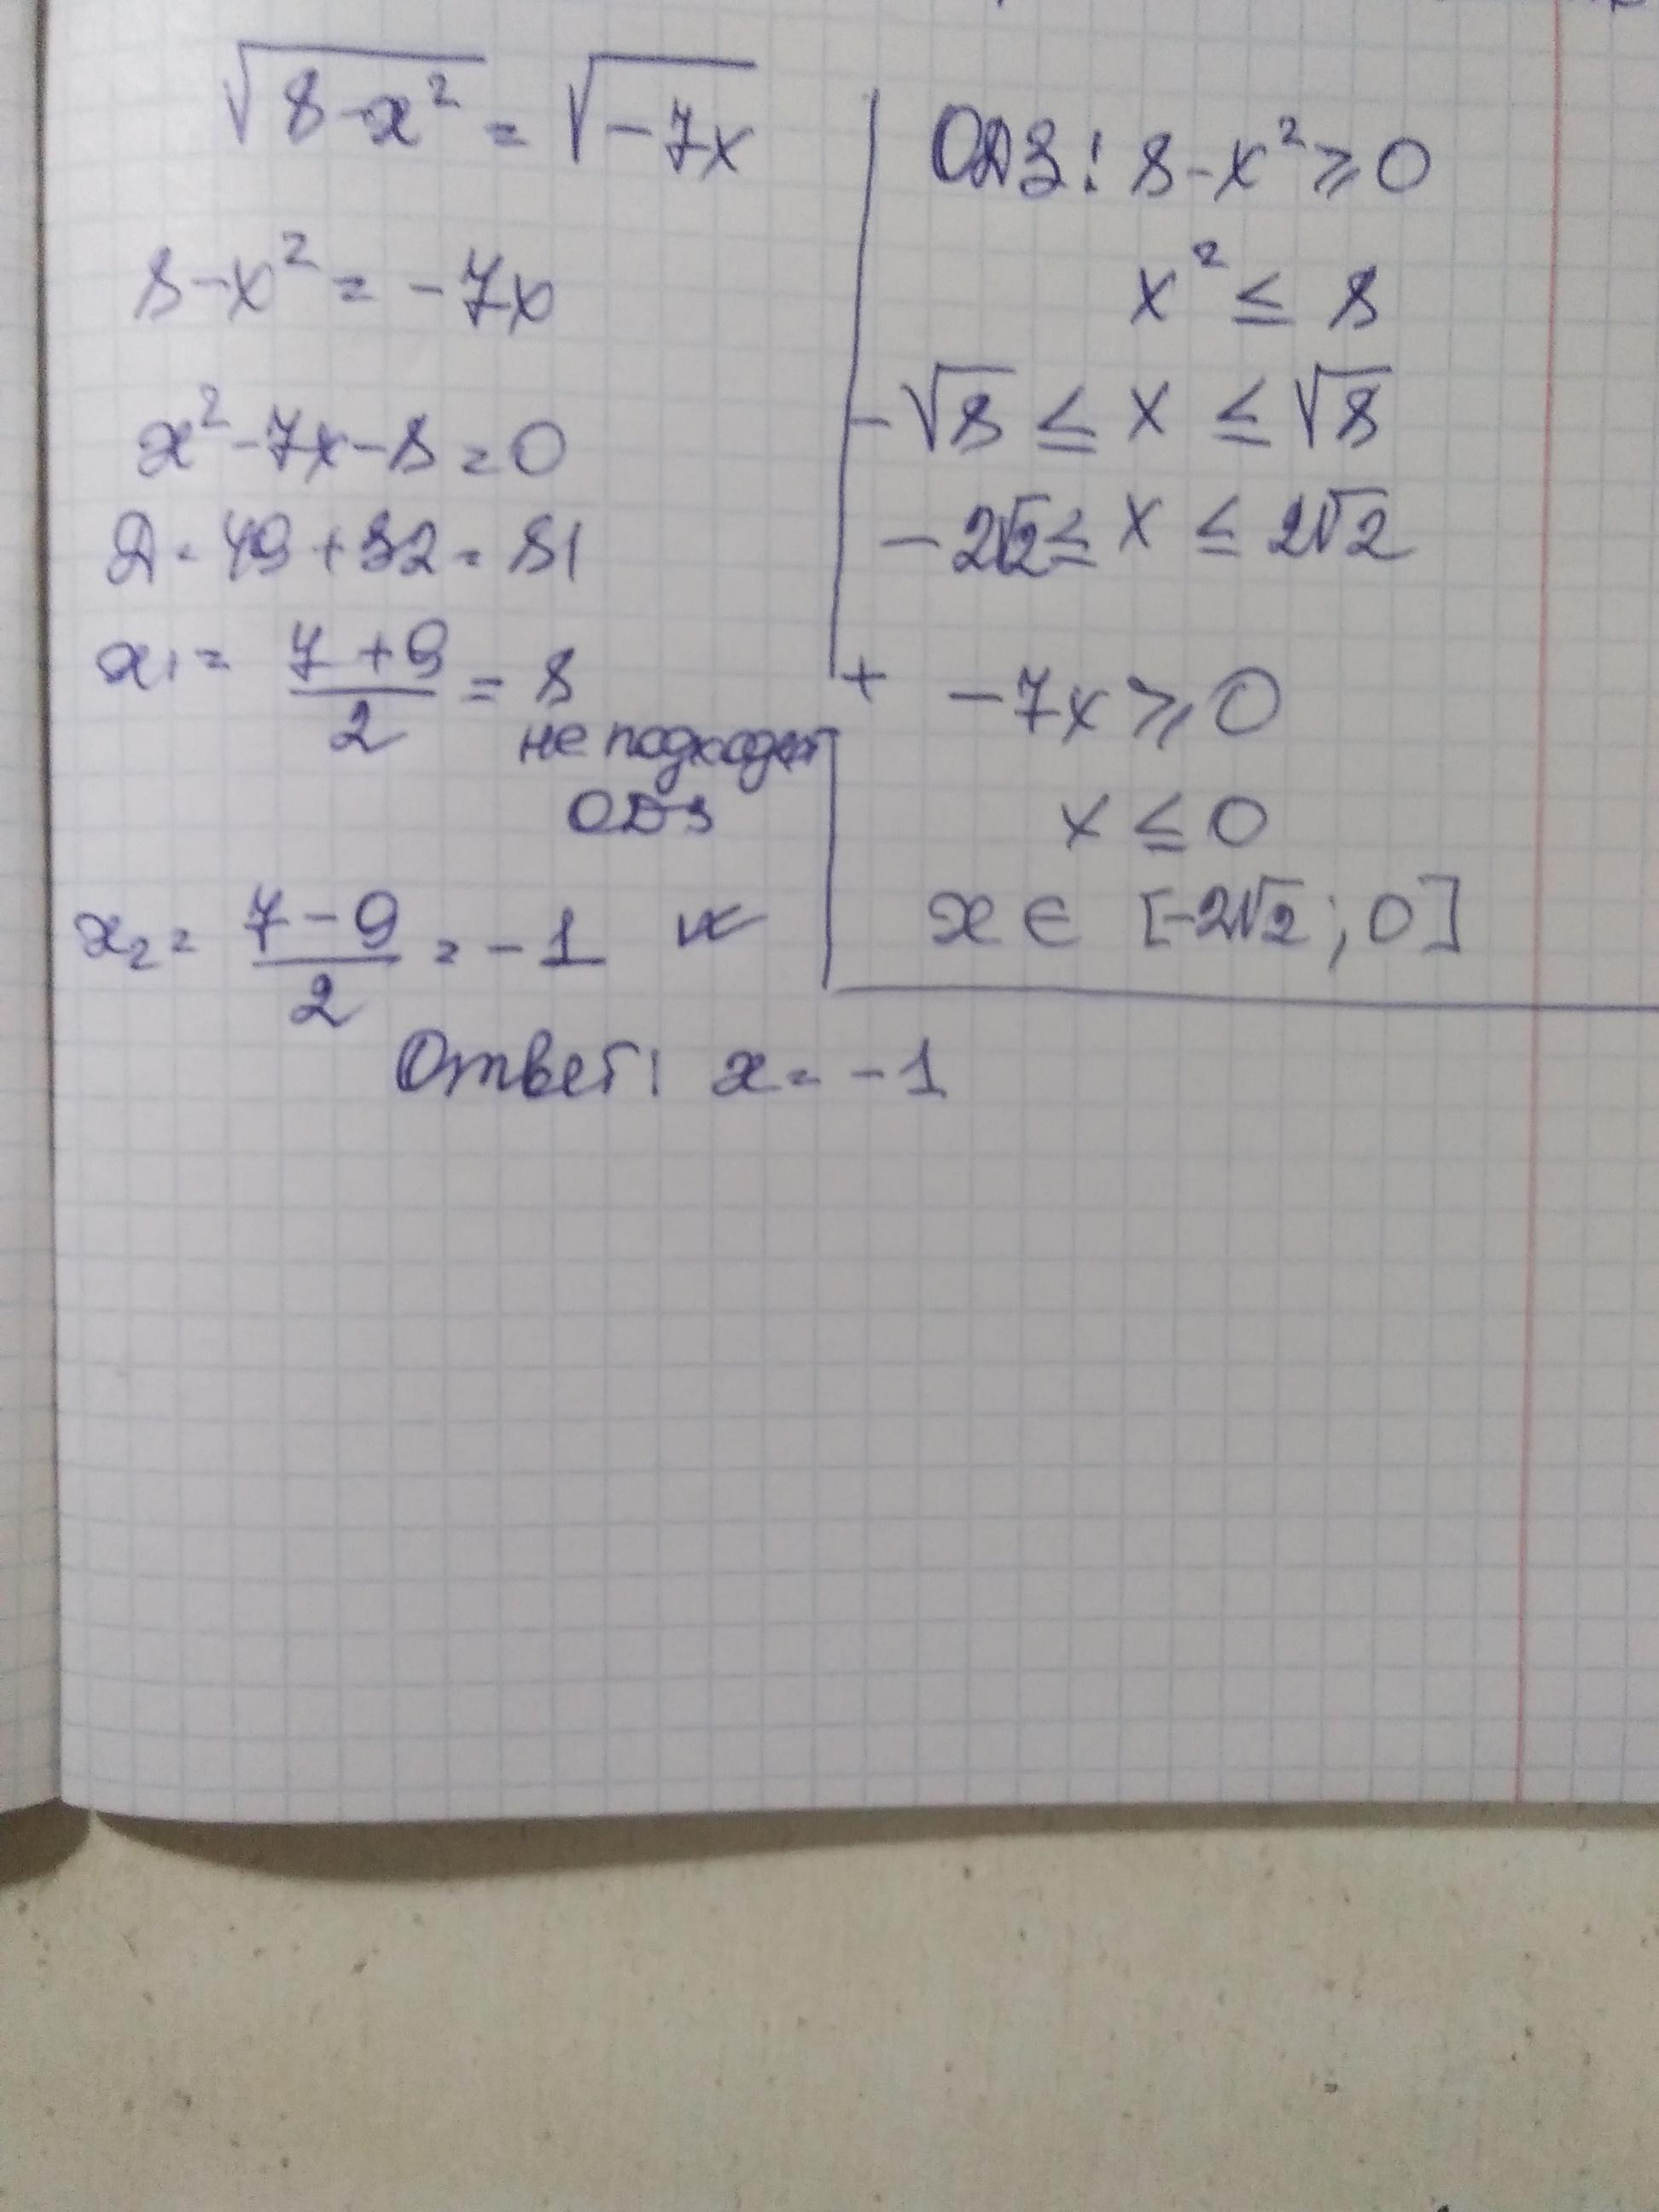 √8-x² = √-7x
8-x² = -7x
x²-7x-8=0
D=49+32=81
x₁ = 7+9/2 = 8
не подходит
ОДЗ
x₂ = 7-9/2 = -1
ОДЗ: 8-x² ⩾ 0
x² ≤ 8
-√8 ≤ x ≤ √8
-2√2 ≤ x ≤ 2√2
+ -7x ⩾ 0
x ≤ 0
x ∈ [-2√2; 0]
Ответ: x = -1